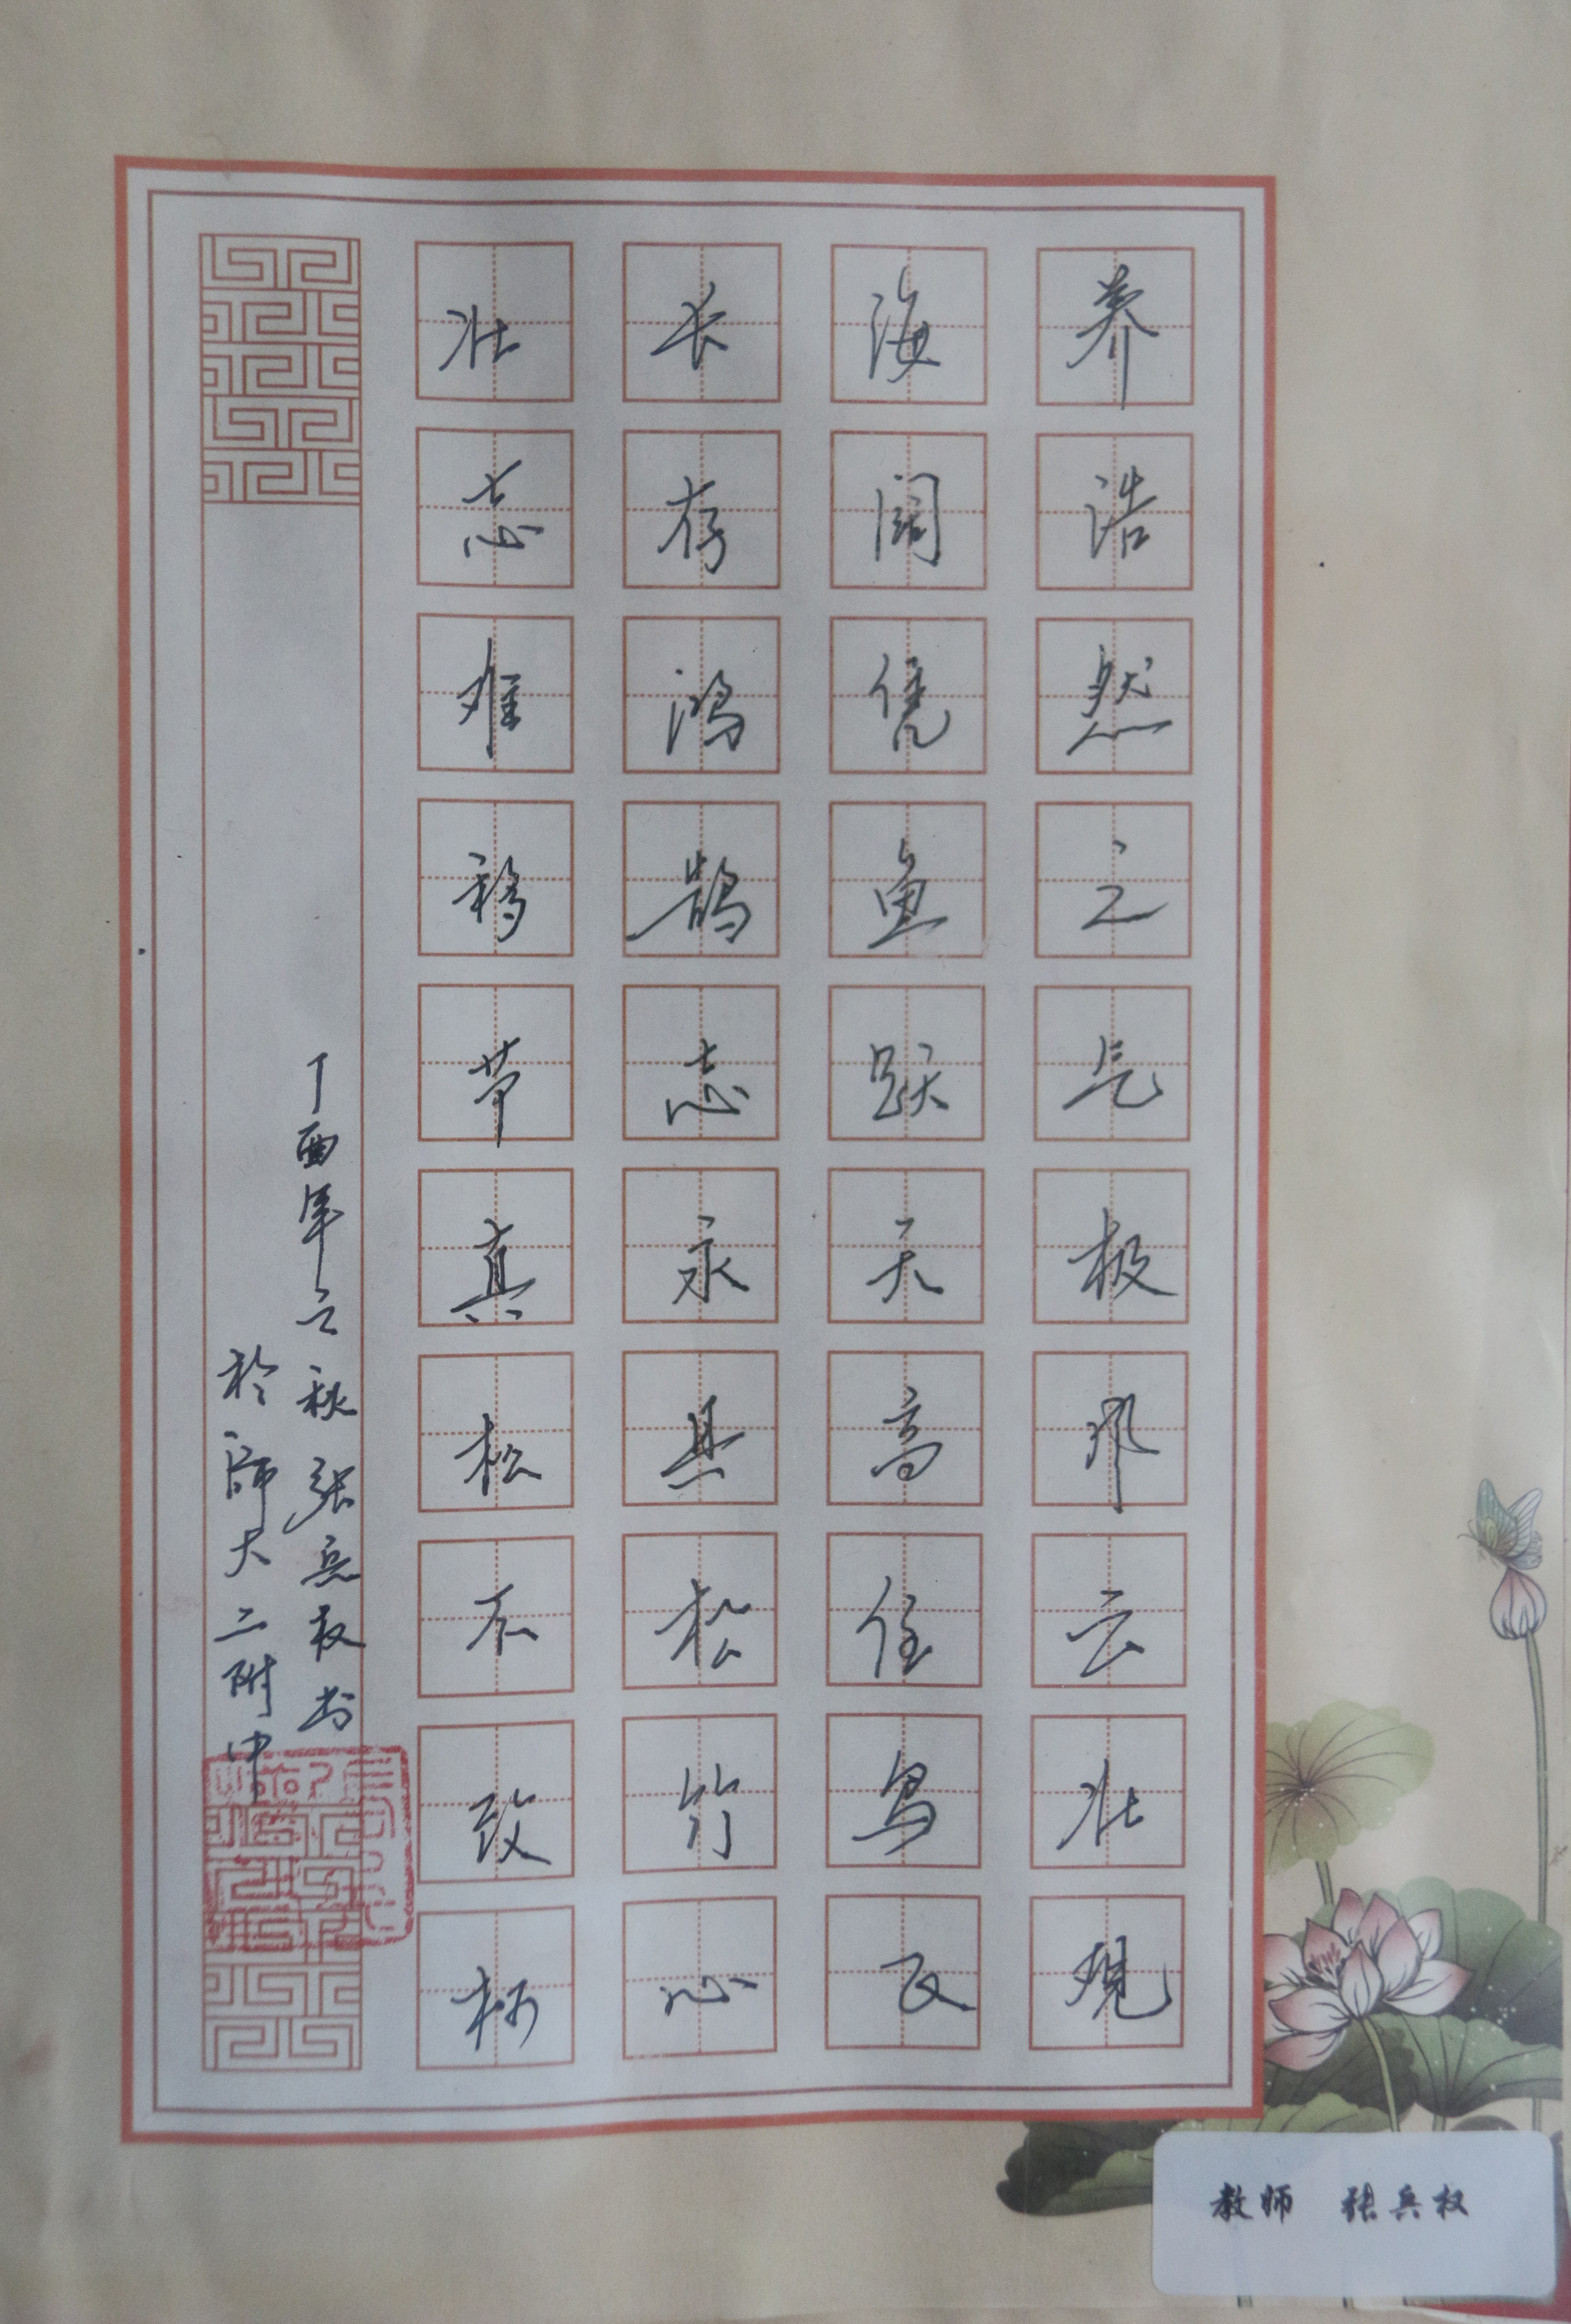 养浩然之气极风云壮观
海阔凭鱼跃天高任鸟飞
长存鸿鹄志永具松竹心
壮志难移节真松不改柯
丁酉年之秋张兵权书
於师大二附中
教师 张兵权